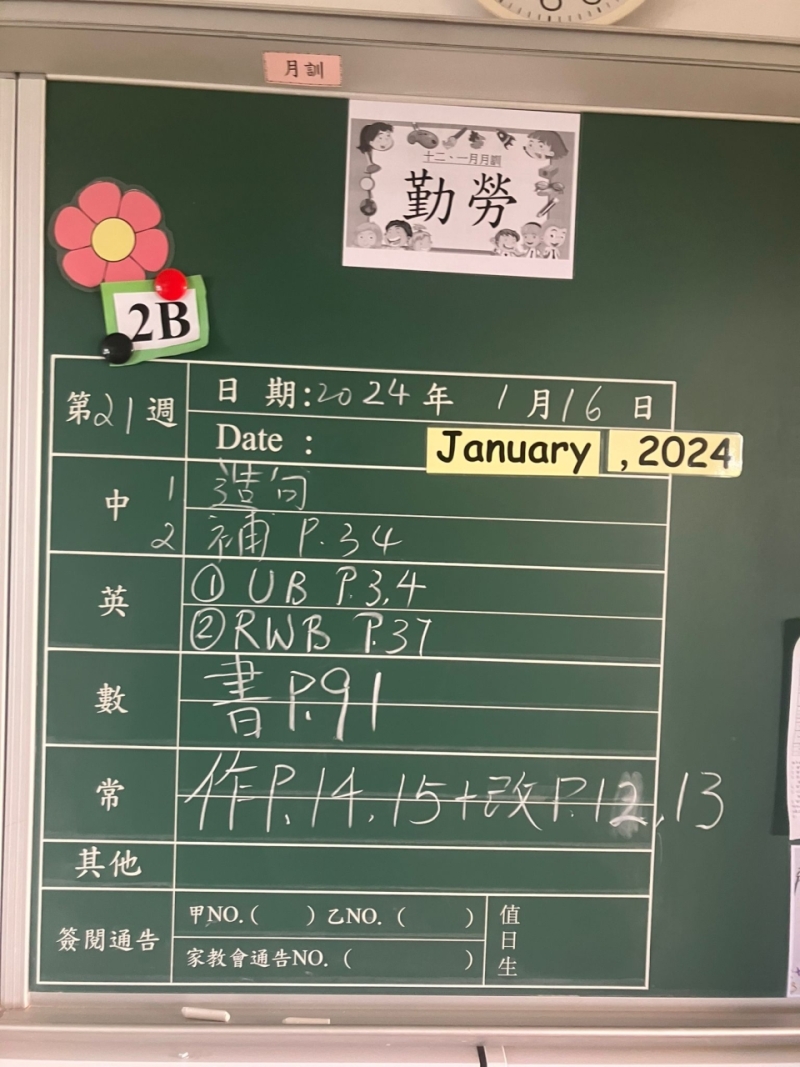 月訓
十二、一月月訓
勤勞
2B
第21週
日期:2024年1月16日
Date : January ,2024
中
1 造句
2 補 P.34
英
① UB P.3,4
② RWB P.37
數
書 P.91
常
作P.14,15+改P.12,13
其他
簽閱通告
甲NO.( ) 乙NO. ( )
家教會通告NO. ( )
值日生